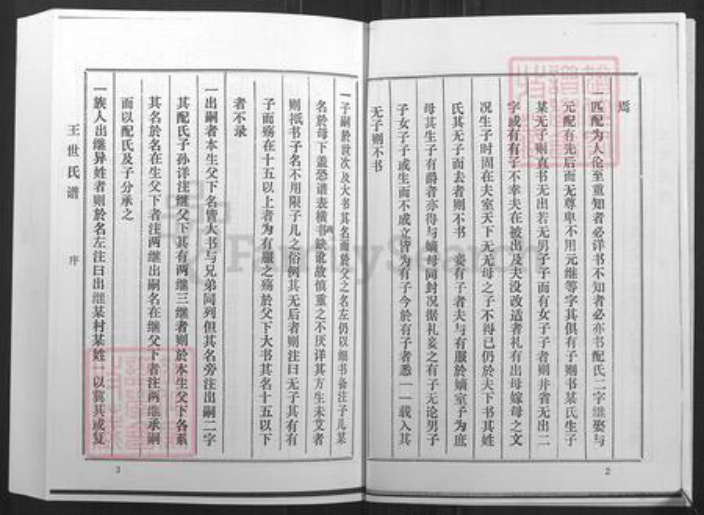 焉
一匹配为人伦至重知者必详书不知者必亦书配氏二字继娶与
元配有先后而无尊卑不用元继等字其俱有子则书某氏生子
某无子则直书无出若无男子子而有女子子者则并省无出二
字或有有子不幸夫在被出及夫没改适者礼有出母嫁母之文
况生子时固在夫室天下无无母之子不得已仍於夫下书其姓
氏其无子而去者则不书 妾有子者夫与有服於嫡室子为庶
母其生子有爵者亦得与嫡母同封况据礼妾之有子无论男子
子女子子或生而不成立皆为有子今於有子者悉一一载入其
无子则不书
2
一子嗣於世次及大书其名而於父之名左仍以细书备注子几某
名於母下盖恐谱表横书缺讹故慎重之不厌详其方生未艾者
则抵书子名不用限子几之俗例其无后者则注曰无子其有有
子而殇在十五以上者为有服之殇於父下大书其名十五以下
者不录
一出嗣者本生父下名皆大书与兄弟同列但其名旁注出嗣二字
其配氏子孙详注继父下其有两继三继者则於本生父下各系
其名於名在生父下者注两继出嗣名在继父下者注两继承嗣
而以配氏及子分承之
一族人出继异姓者则於名左注曰出继某村某姓一以冀其或复
王世氏谱
序
3